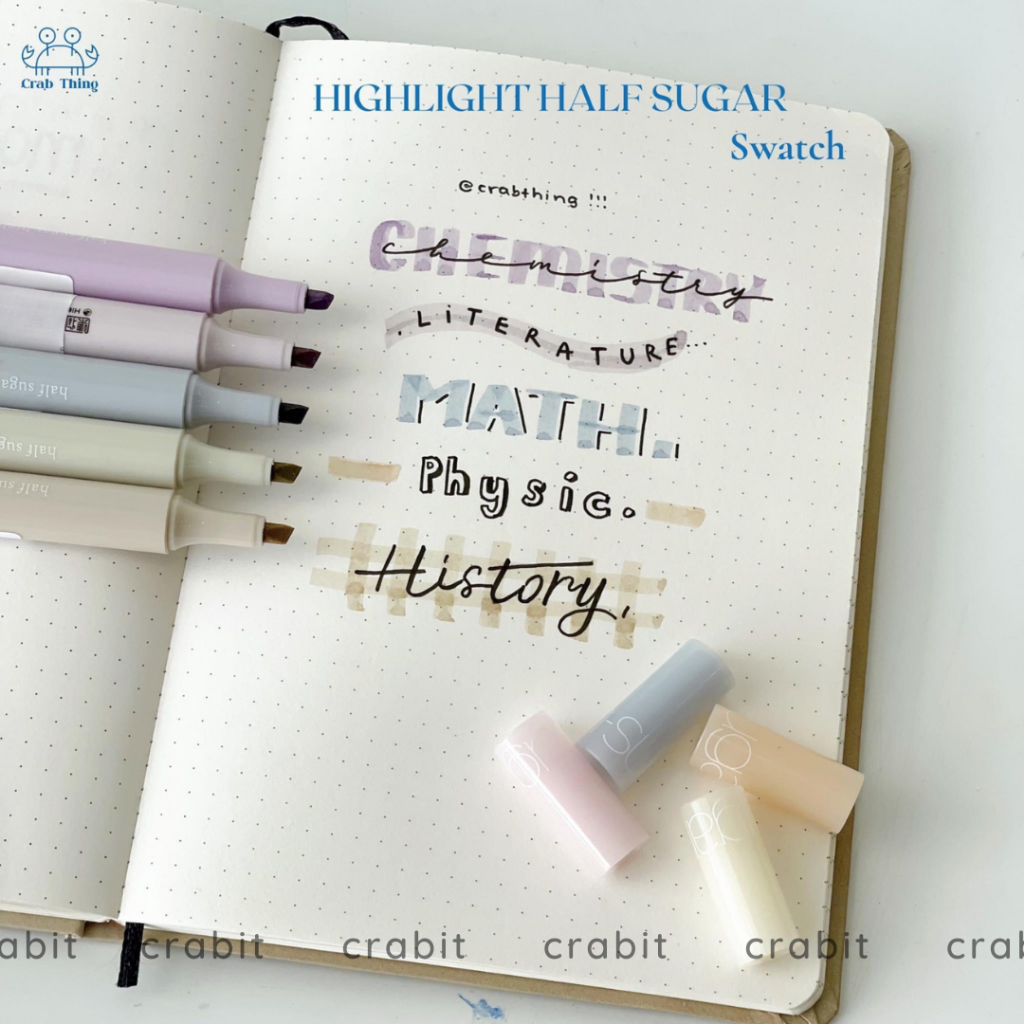 Crab Thing
HIGHLIGHT HALF SUGAR
Swatch
@crabthing !!!
CHEMISTRY
chemistry
. LiTERATURE...
MATH.
Physic.
History,
half sugar
half sugar
half sugar
crabit crabit crabit crabit